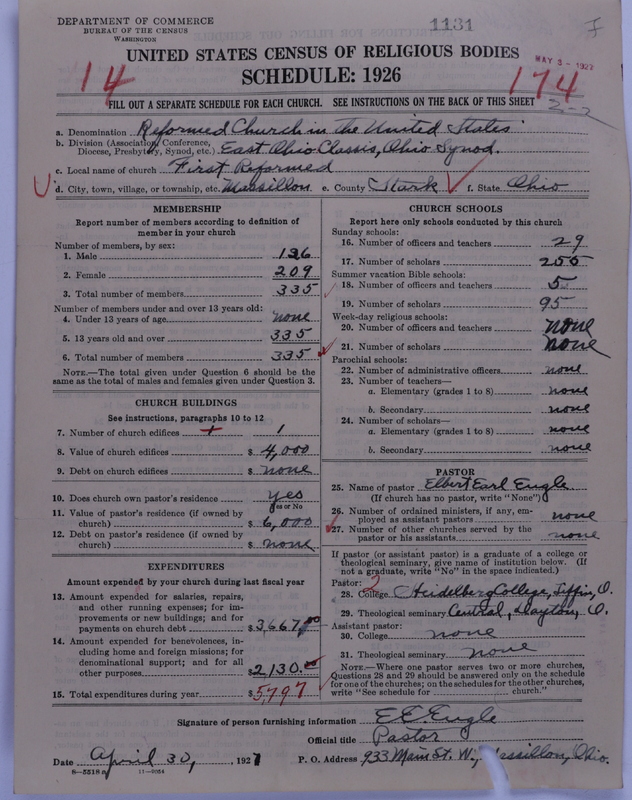 DEPARTMENT OF COMMERCE
BUREAU OF THE CENSUS
WASHINGTON
1131
UNITED STATES CENSUS OF RELIGIOUS BODIES
SCHEDULE: 1926
MAY 3 - 1927
14
174
FILL OUT A SEPARATE SCHEDULE FOR EACH CHURCH. SEE INSTRUCTIONS ON THE BACK OF THIS SHEET
a. Denomination Reformed Church in the United States
b. Division (Association, Conference, Diocese, Presbytery, Synod, etc.) East Ohio Classis, Ohio Synod.
c. Local name of church First Reformed
d. City, town, village, or township, etc. Massillon e. County Stark f. State Ohio
MEMBERSHIP
Report number of members according to definition of
member in your church
Number of members, by sex:
1. Male 126
2. Female 209
3. Total number of members 335
Number of members under and over 13 years old:
4. Under 13 years of age none
5. 13 years old and over 335
6. Total number of members 335
NOTE.—The total given under Question 6 should be
same as the total of males and females given under Question 3.
CHURCH BUILDINGS
See instructions, paragraphs 10 to 12
7. Number of church edifices 1
8. Value of church edifices $ 4,000
9. Debt on church edifices $ none
10. Does church own pastor's residence yes
Yes or No
11. Value of pastor's residence (if owned by
church) $ 6,000
12. Debt on pastor's residence (if owned by
church) $ none
EXPENDITURES
Amount expended by your church during last fiscal year
13. Amount expended for salaries, repairs,
and other running expenses; for im-
provements or new buildings; and for
payments on church debt $3,667.00
14. Amount expended for benevolences, in-
cluding home and foreign missions; for
denominational support; and for all
other purposes $2,130.00
15. Total expenditures during year $5797
CHURCH SCHOOLS
Report here only schools conducted by this church
Sunday schools:
16. Number of officers and teachers 29
17. Number of scholars 255
Summer vacation Bible schools:
18. Number of officers and teachers 5
19. Number of scholars 95
Week-day religious schools:
20. Number of officers and teachers none
21. Number of scholars none
Parochial schools:
22. Number of administrative officers none
23. Number of teachers—
a. Elementary (grades 1 to 8) none
b. Secondary none
24. Number of scholars—
a. Elementary (grades 1 to 8) none
b. Secondary none
PASTOR
25. Name of pastor Elbert Earl Engle
(If church has no pastor, write "None")
26. Number of ordained ministers, if any, em-
ployed as assistant pastors none
27. Number of other churches served by the
pastor or his assistants none
If pastor (or assistant pastor) is a graduate of a college or
theological seminary, give name of institution below. (If
not a graduate, write "No" in the space indicated.)
Pastor: 2
28. College Heidelberg College, Tiffin, O.
29. Theological seminary Central, Dayton, O.
Assistant pastor:
30. College none
31. Theological seminary none
NOTE.—Where one pastor serves two or more churches,
Questions 28 and 29 should be answered only on the schedule
for one of the churches; on the schedules for the other churches,
write "See schedule for church."
Signature of person furnishing information E. E. Engle
Official title Pastor
Date April 30, 1927 P. O. Address 933 Main St. W., Massillon, Ohio.
8—5518a 11—9054